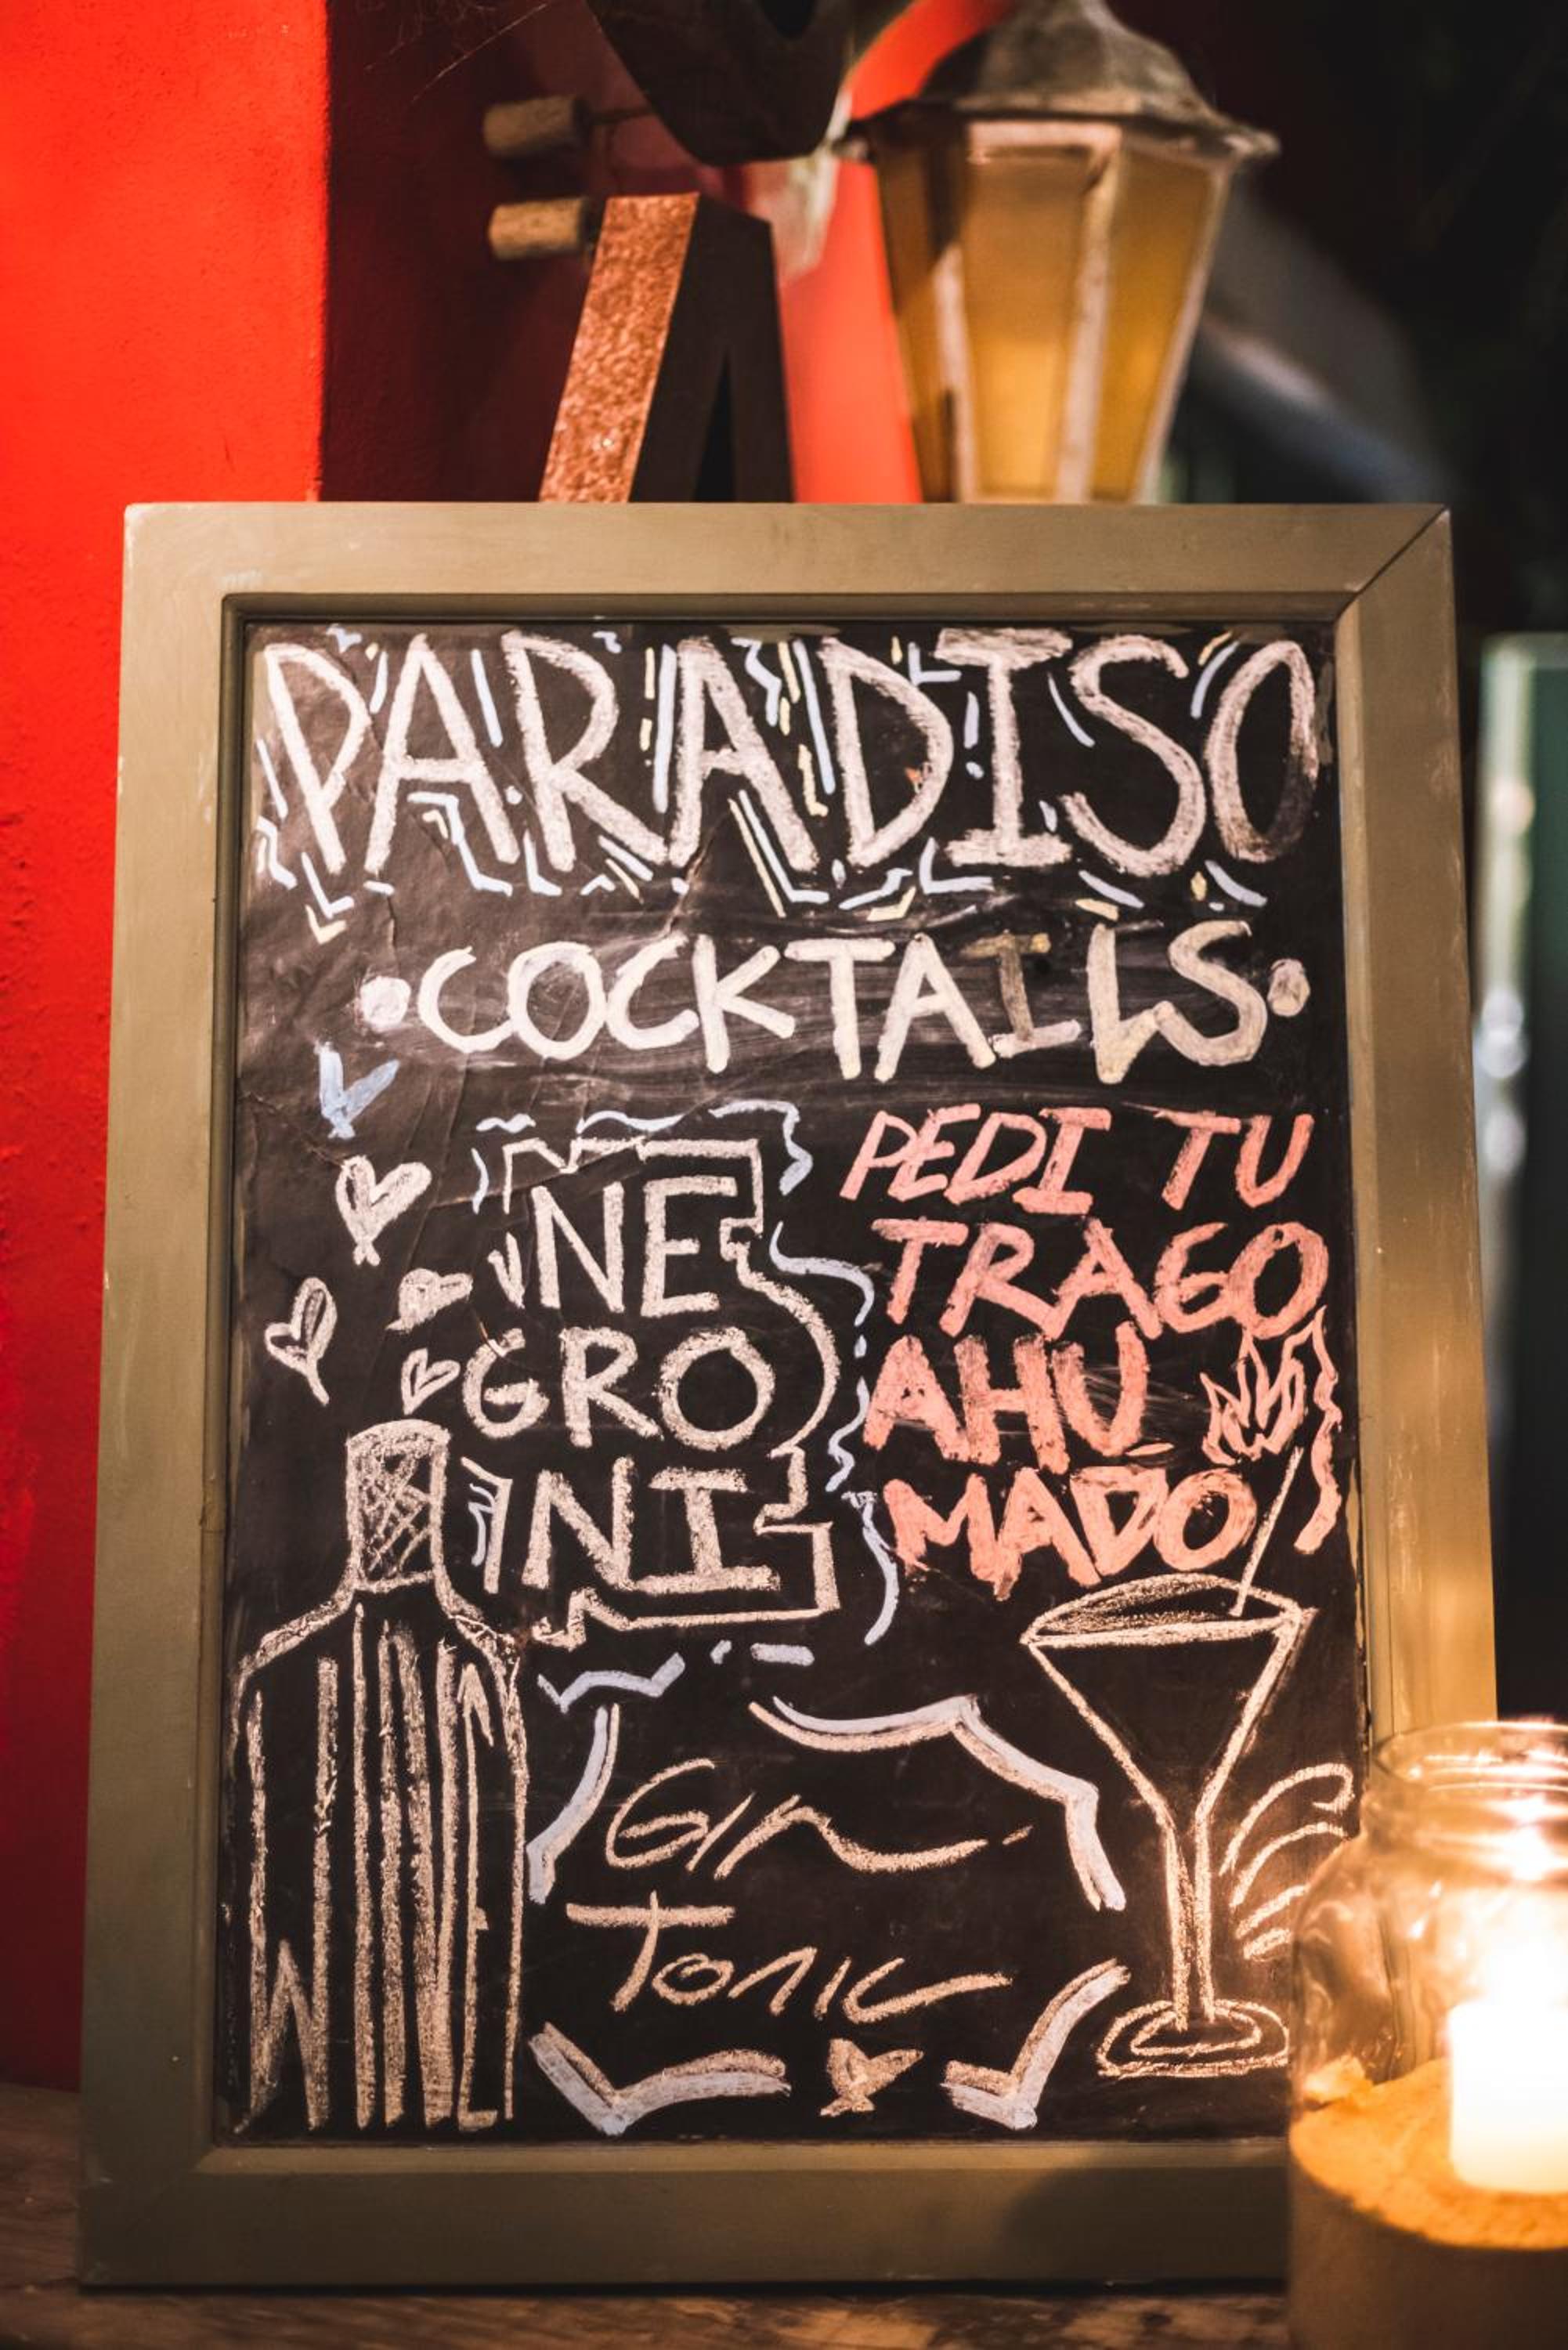 PARADISO
•COCKTAILS•
NE
GRO
NI
PEDI TU
TRAGO
AHU
MADO
WINE
Gin
Tonic